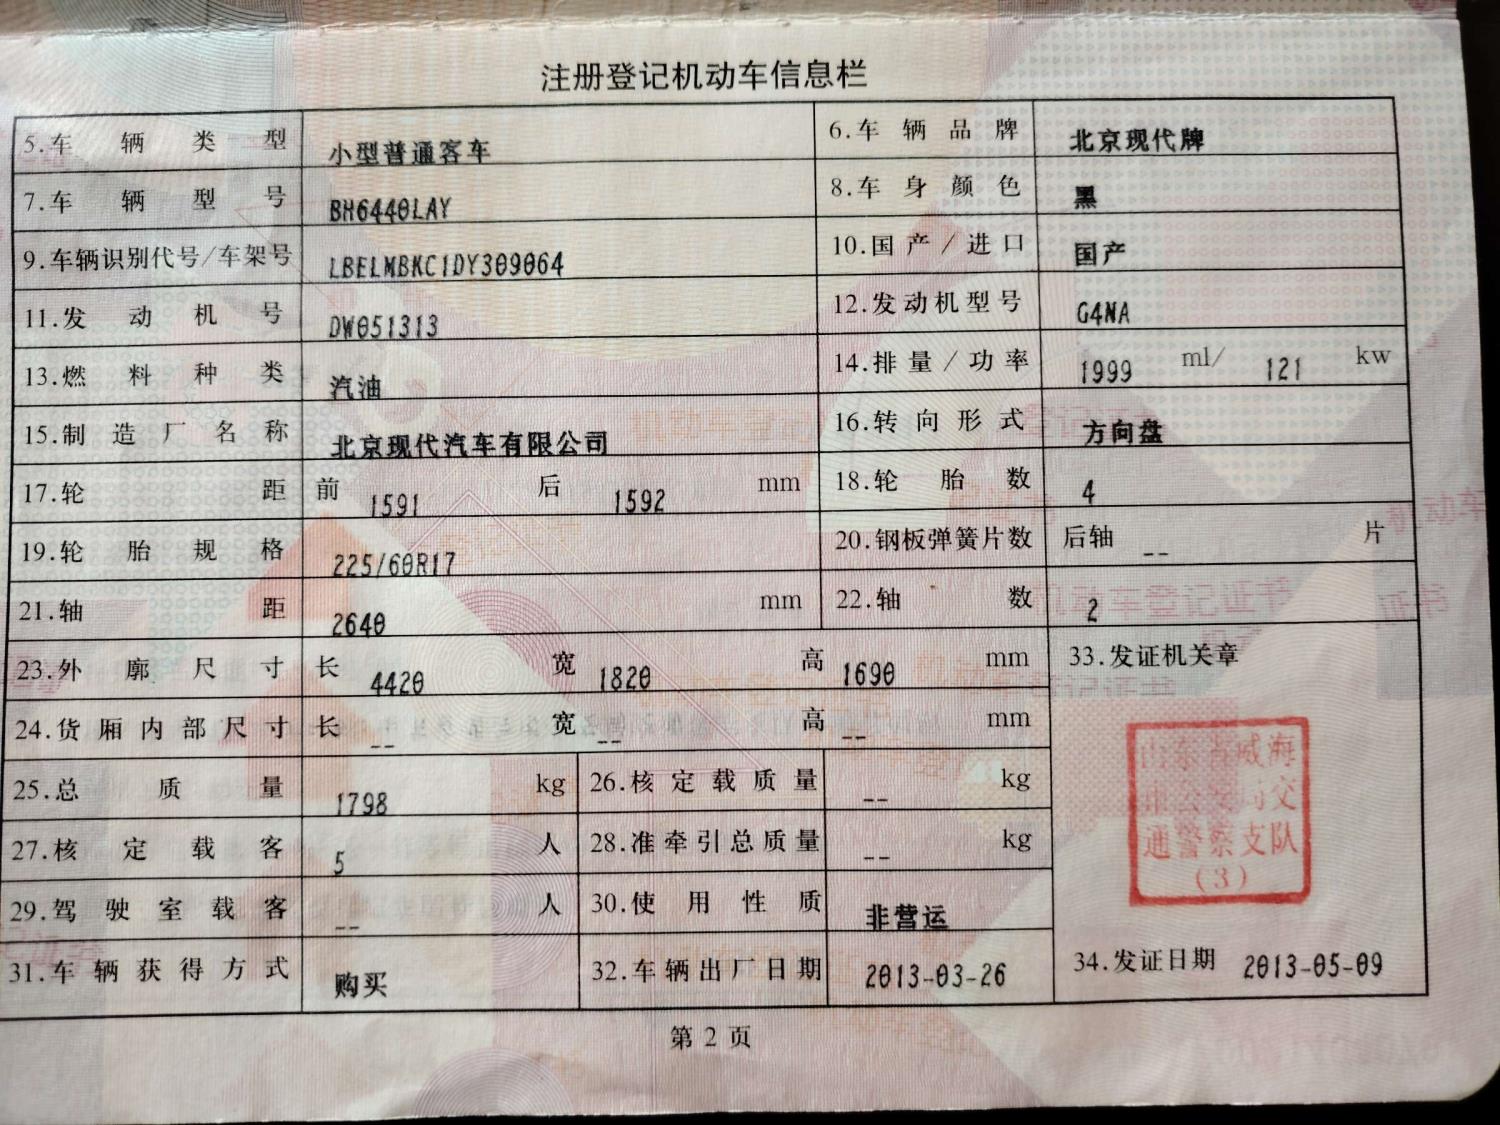 注册登记机动车信息栏
5.车辆类型 小型普通客车 6.车辆品牌 北京现代牌
7.车辆型号 BH6440LAY 8.车身颜色 黑
9.车辆识别代号/车架号 LBELMBKC1DY309064 10.国产/进口 国产
11.发动机号 DW051313 12.发动机型号 G4NA
13.燃料种类 汽油 14.排量/功率 1999 ml/ 121 kw
15.制造厂名称 北京现代汽车有限公司 16.转向形式 方向盘
17.轮距 前 1591 后 1592 mm 18.轮胎数 4
19.轮胎规格 225/60R17 20.钢板弹簧片数 后轴 -- 片
21.轴距 2640 mm 22.轴数 2
23.外廓尺寸 长 4420 宽 1820 高 1690 mm 33.发证机关章
24.货厢内部尺寸 长 -- 宽 -- 高 -- mm
25.总质量 1798 kg 26.核定载质量 -- kg
27.核定载客 5 人 28.准牵引总质量 -- kg
29.驾驶室载客 -- 人 30.使用性质 非营运
31.车辆获得方式 购买 32.车辆出厂日期 2013-03-26 34.发证日期 2013-05-09
山东省威海
市公安局交
通警察支队
(3)
第2页